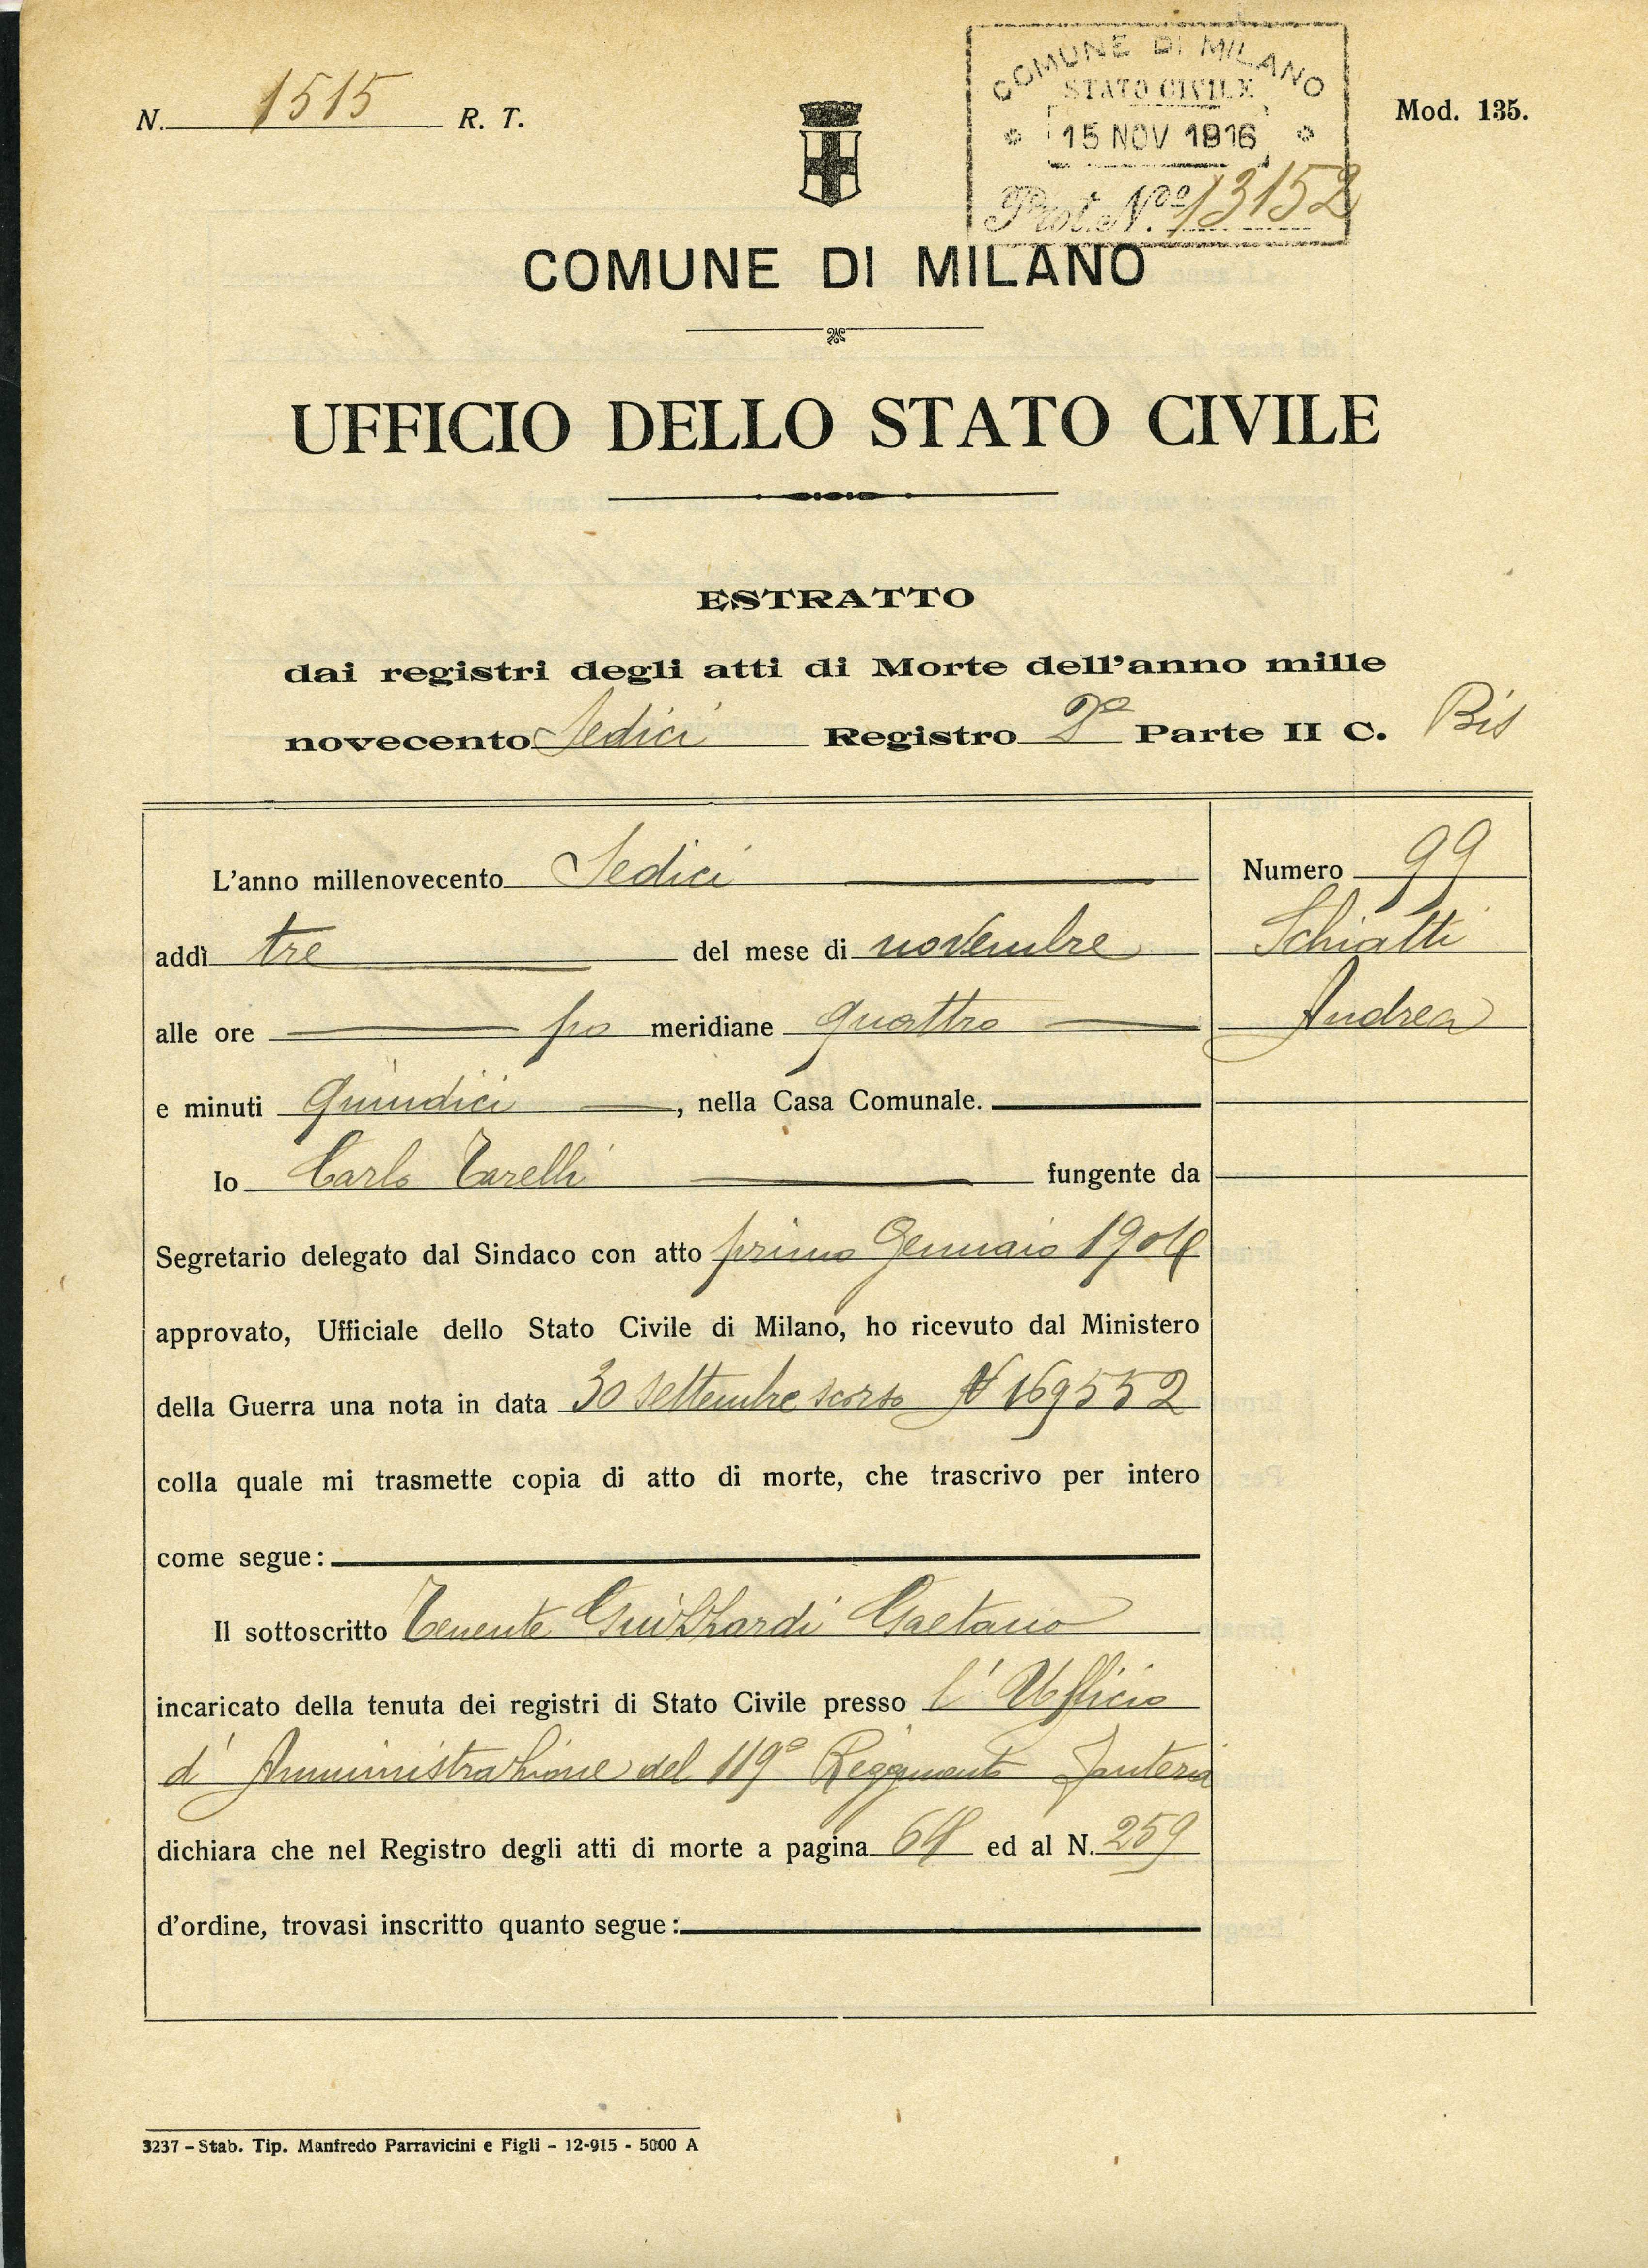 N. 1515 R. T.
COMUNE DI MILANO
STATO CIVILE
15 NOV 1916
Prot. N.º 13152
Mod. 135.
COMUNE DI MILANO
UFFICIO DELLO STATO CIVILE
ESTRATTO
dai registri degli atti di Morte dell'anno mille
novecento Sedici Registro Parte II C. Bis
L'anno millenovecento Sedici
Numero 99
addì tre del mese di novembre
Schiatti
alle ore po meridiane quattro
Andrea
e minuti Quindici, nella Casa Comunale.
Io Carlo Tarelli fungente da
Segretario delegato dal Sindaco con atto primo Gennaio 1904
approvato, Ufficiale dello Stato Civile di Milano, ho ricevuto dal Ministero
della Guerra una nota in data 30 settembre scorso N 169552
colla quale mi trasmette copia di atto di morte, che trascrivo per intero
come segue:
Il sottoscritto Tenente Gaetano
incaricato della tenuta dei registri di Stato Civile presso l'Ufficio
d'Amministrazione del 119º Reggimento Fanteria
dichiara che nel Registro degli atti di morte a pagina 64 ed al N. 259
d'ordine, trovasi inscritto quanto segue:
3237 – Stab. Tip. Manfredo Parravicini e Figli – 12-915 - 5000 A